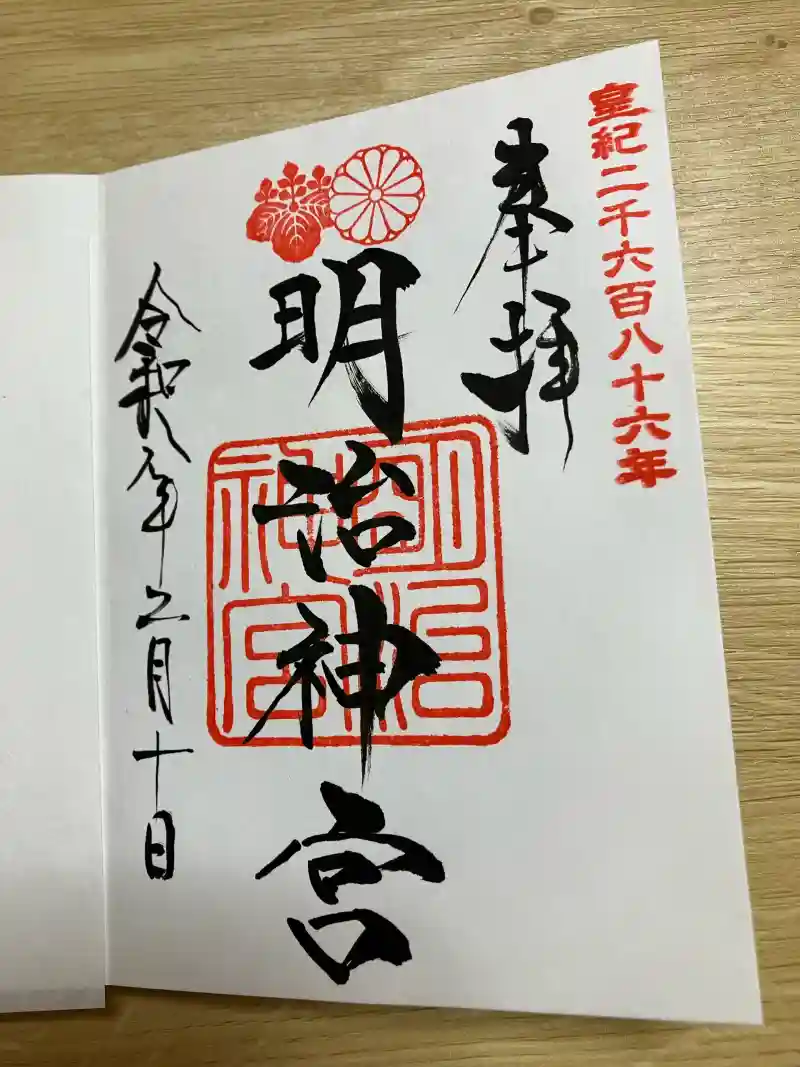 皇紀二千六百八十六年
奉拝
明治神宮
明治神宮
令和八年二月十日